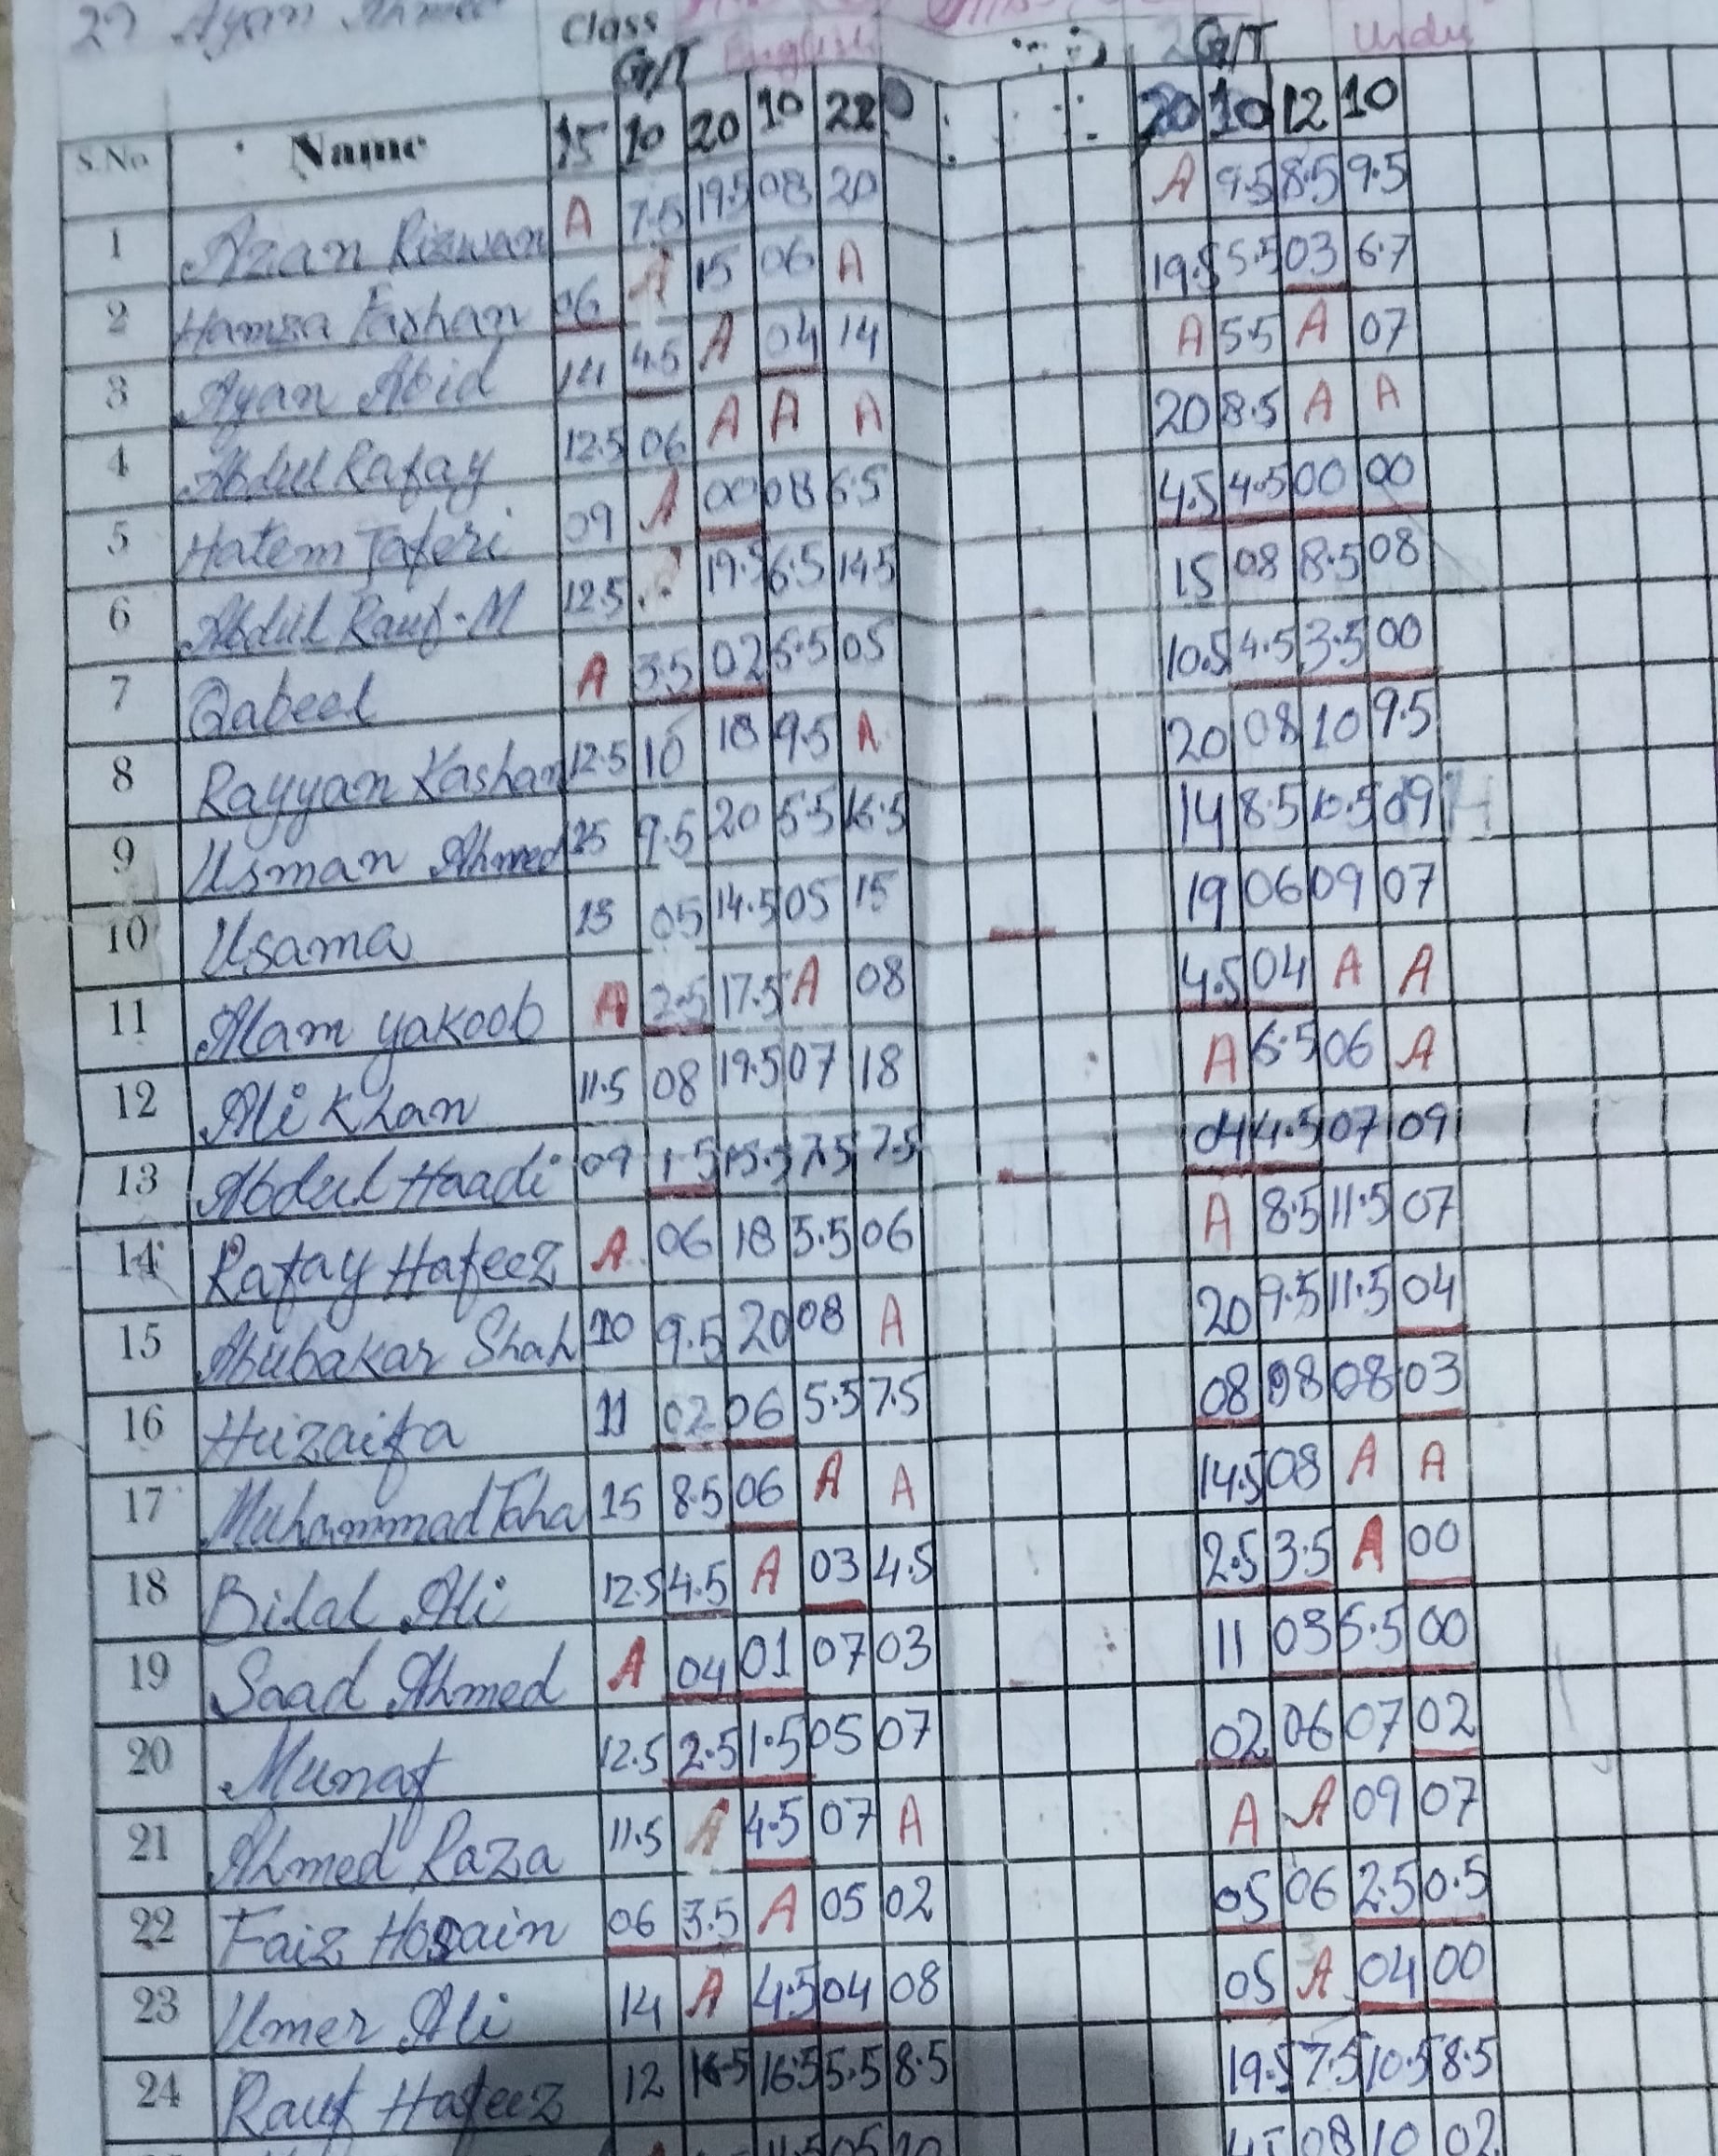 27 Ayan Ahmed
Class
G/T English G/T Urdu
S.No Name 15 10 20 10 22 20 10 12 10
1 Azan Rizwan A 7.5 19.5 08 20 A 9.5 8.5 9.5
2 Hamza Farhan 06 A 15 06 A 19.5 5.5 03 6.7
3 Ayan Abid 14 4.5 A 04 14 A 5.5 A 07
4 Abdul Rafay 12.5 06 A A A 20 8.5 A A
5 Hatem Taferi 09 A 00 08 6.5 4.5 4.5 00 00
6 Abdul Rauf.M 12.5 19.5 6.5 14.5 15 08 8.5 08
7 Qabeel A 3.5 02 5.5 05 10.5 4.5 3.5 00
8 Rayyan Kashan 12.5 10 18 9.5 A 20 08 10 9.5
9 Usman Ahmed 15 9.5 20 5.5 16.5 14 8.5 10.5 09
10 Usama 13 05 14.5 05 15 19 06 09 07
11 Alam yakoob A 2.5 17.5 A 08 4.5 04 A A
12 Ali Khan 11.5 08 19.5 07 18 A 6.5 06 A
13 Abdul Haadi 09 1.5 15.5 7.5 7.5 04 4.5 07 09
14 Rafay Hafeez A 06 18 5.5 06 A 8.5 11.5 07
15 Abubakar Shah 10 9.5 20 08 A 20 9.5 11.5 04
16 Huzaifa 11 02 06 5.5 7.5 08 08 08 03
17 Muhammad Taha 15 8.5 06 A A 14.5 08 A A
18 Bilal Ali 12.5 4.5 A 03 4.5 2.5 3.5 A 00
19 Saad Ahmed A 04 01 07 03 11 03 5.5 00
20 Munaf 12.5 2.5 1.5 05 07 02 06 07 02
21 Ahmed Raza 11.5 A 4.5 07 A A A 09 07
22 Faiz Hosain 06 3.5 A 05 02 05 06 2.5 0.5
23 Umer Ali 14 A 4.5 04 08 05 A 04 00
24 Rauf Hafeez 12 16.5 5.5 8.5 19.5 7.5 10.5 8.5
08 10 02